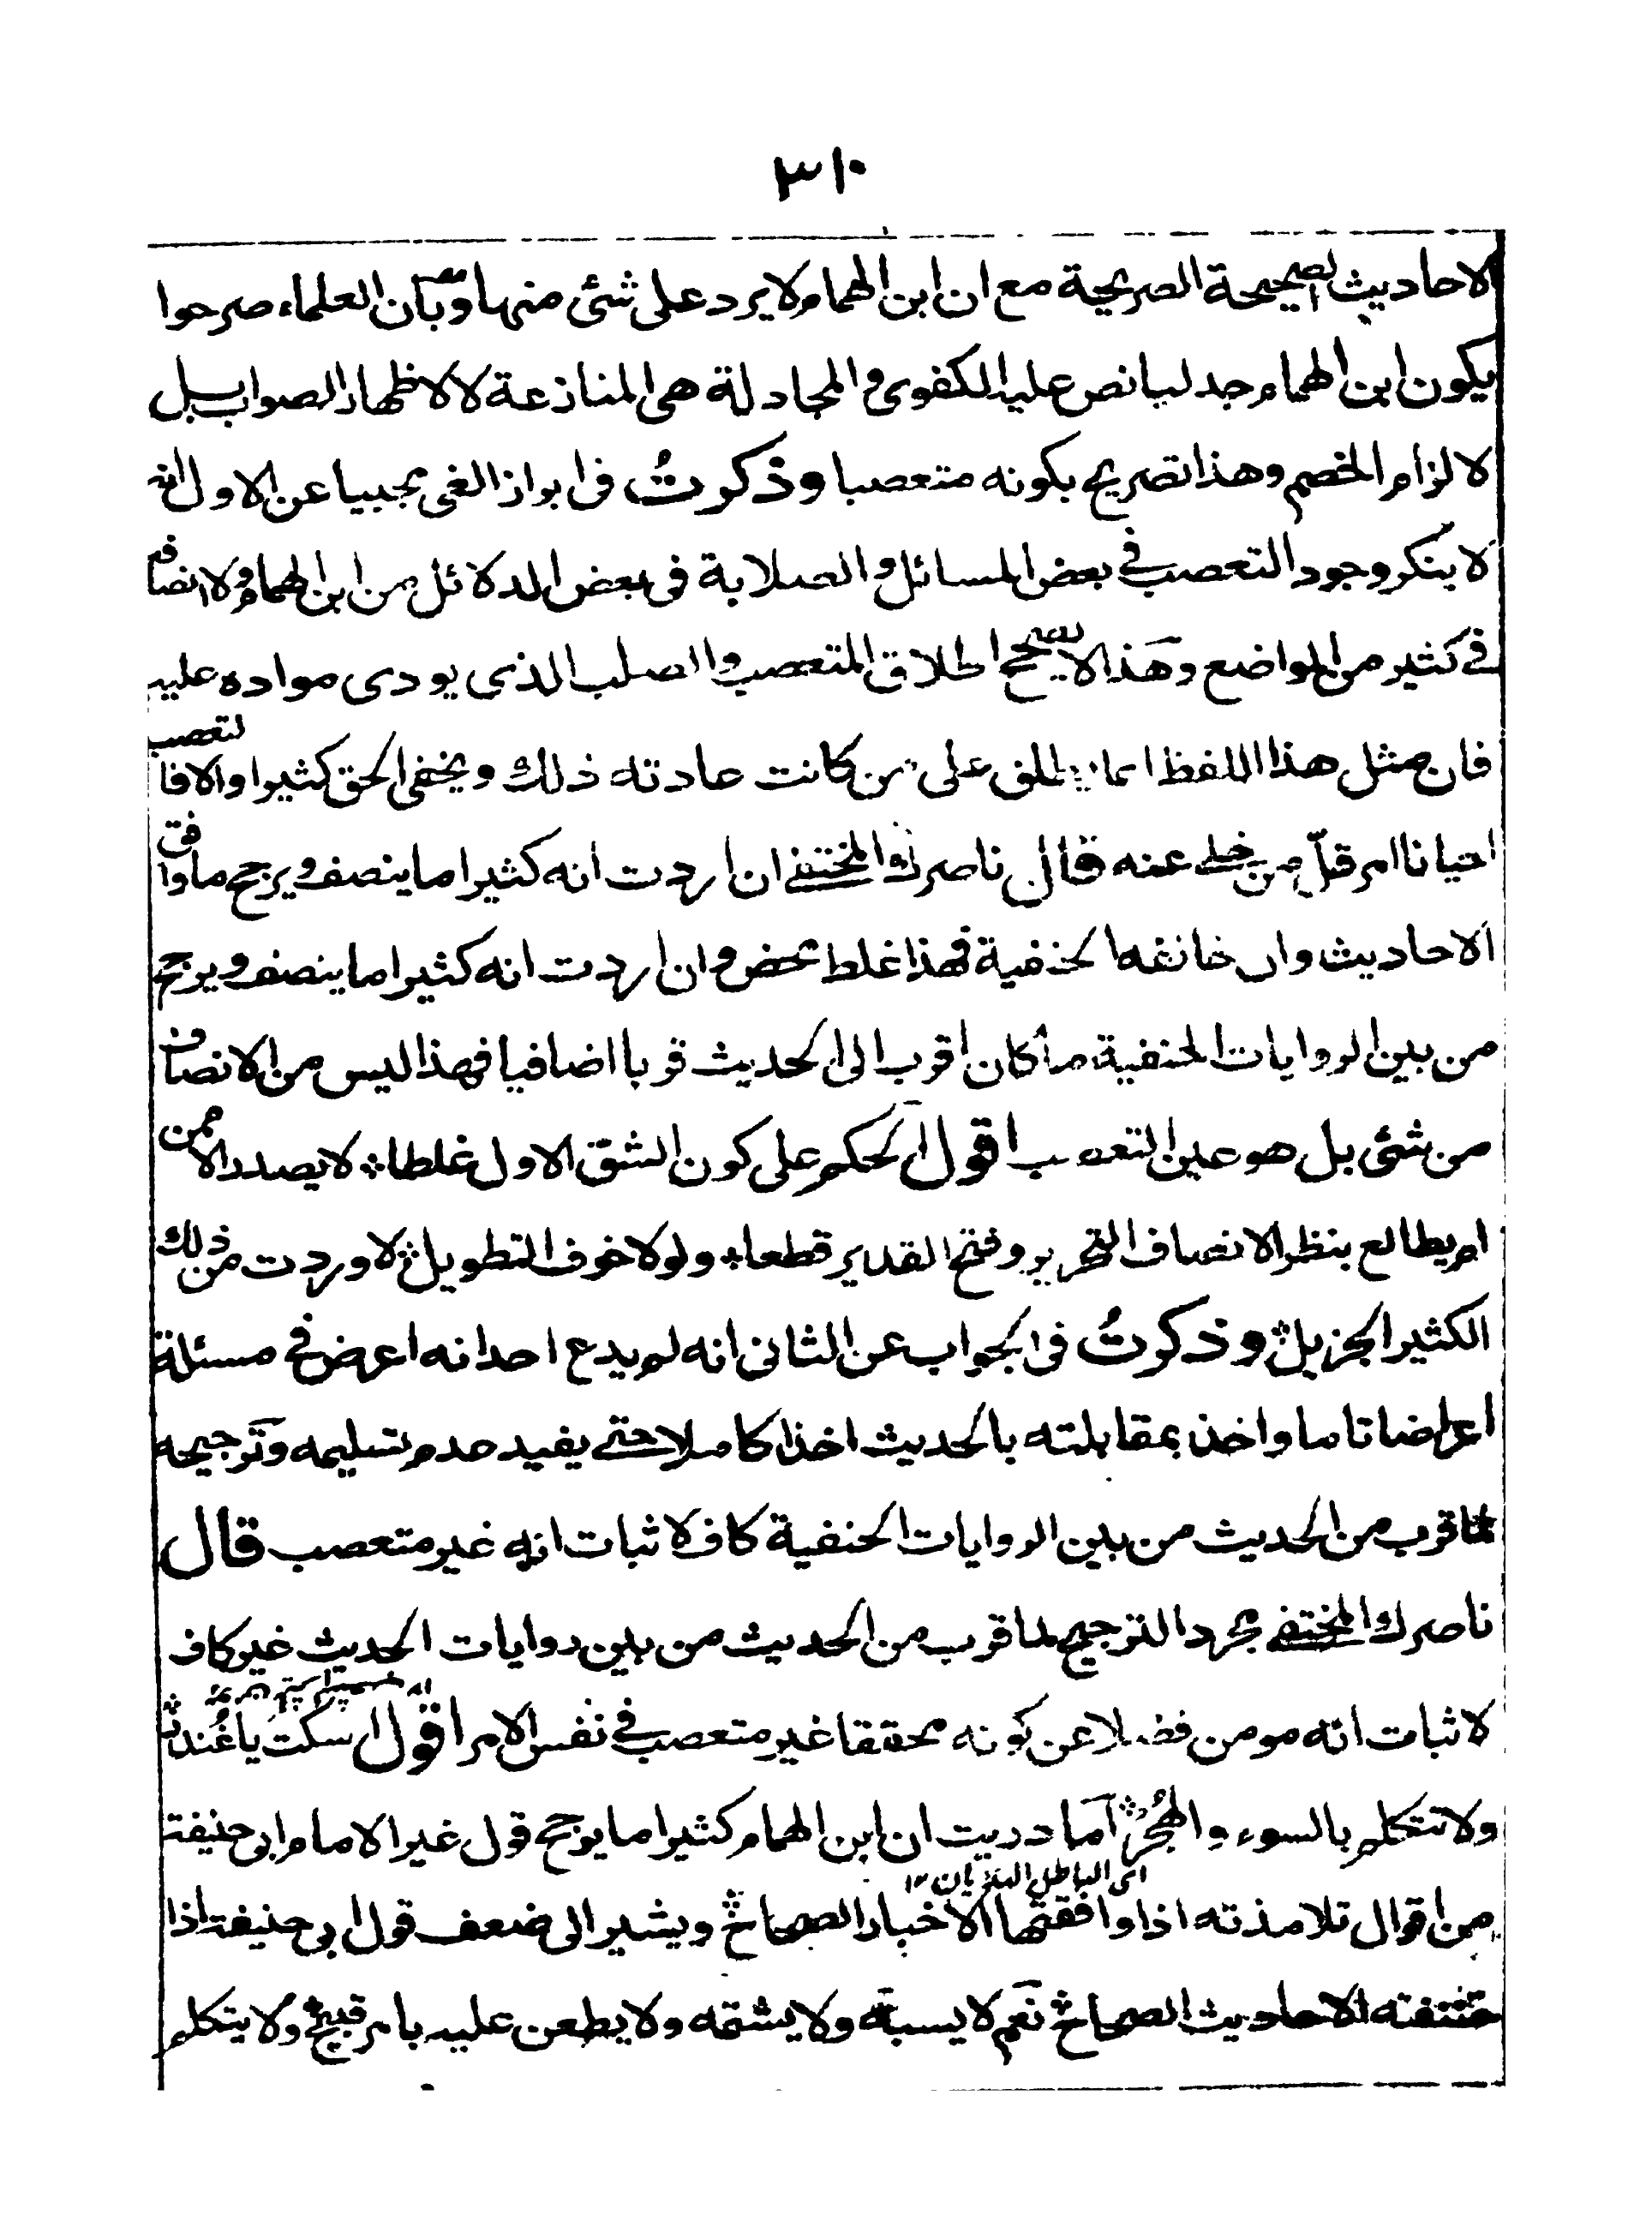 ٣١٠
الاحاديث الصحيحة الصريحة مع ان ابن الهمام لا يرد على شئ منها وبان العلماء صرحوا
بكون ابن الهمام جدليا نص عليه الكفوى والمجادلة هى المنازعة لا لاظهار الصواب بل
لالزام الخصم وهذا تصريح بكونه متعصبا وذكرتُ فى ابراز الغى مجيبا عن الاول انه
لا ينكر وجود التعصب في بعض المسائل والصلابة فى بعض الدلائل من ابن الهمام ولا انصافه
في كثير من المواضع وهذا لا يصحح اطلاق المتعصب والصلب الذى يودى مواده عليه
فان مثل هذا اللفظ انما يطلق على من كانت عادته ذلك ويخفى الحق كثيرا والا فالتعصب
احيانا امر قلّ من خلى عنه قال ناصرك المختفے ان اردت انه كثيرا ما ينصف ويرجح ما وافق
الاحاديث وان خالفه الحنفية فهذا غلط محض وان اردت انه كثيرا ما ينصف ويرجح
من بين الروايات الحنفية ما كان اقرب الى الحديث قربا اضافيا فهذا ليس من الانصاف
من شئى بل هو عين التعصب اقول الحكم على كون الشق الاول غلطا لا يصدر الا ممن
لم يطالع بنظر الانصاف التحرير وفتح القدير قطعا ولولا خوف التطويل لاوردت من ذلك
الكثير الجزيل وذكرتُ فى الجواب عن الثانى انه لم يدع احد انه اعرض فى مسئلة
اعراضا تاما واخذ بمقابلته بالحديث اخذا كاملا حتى يفيد عدم تسليمه وترجيحه
لما قرب من الحديث من بين الروايات الحنفية كاف لاثبات انه غير متعصب قال
ناصرك المختفے مجرد الترجيح لما قرب من الحديث من بين روايات الحديث غير كاف
لاثبات انه مومن فضلا عن كونه محققا غير متعصب في نفس الامر اقول اسكت يا غُندر
ولا تتكلم بالسوء والهُجُر اما دريت ان ابن الهمام كثيرا ما يرجح قول غير الامام ابى حنيفة
اى الباطل الهذيان ١٢
من اقوال تلامذته اذا وافقتها الاخبار الصحاح ويشير الى ضعف قول ابى حنيفة اذا
خالفته الاحاديث الصحاح نعم لا يسبه ولا يشتمه ولا يطعن عليه بامر قبيح ولا يتكلم